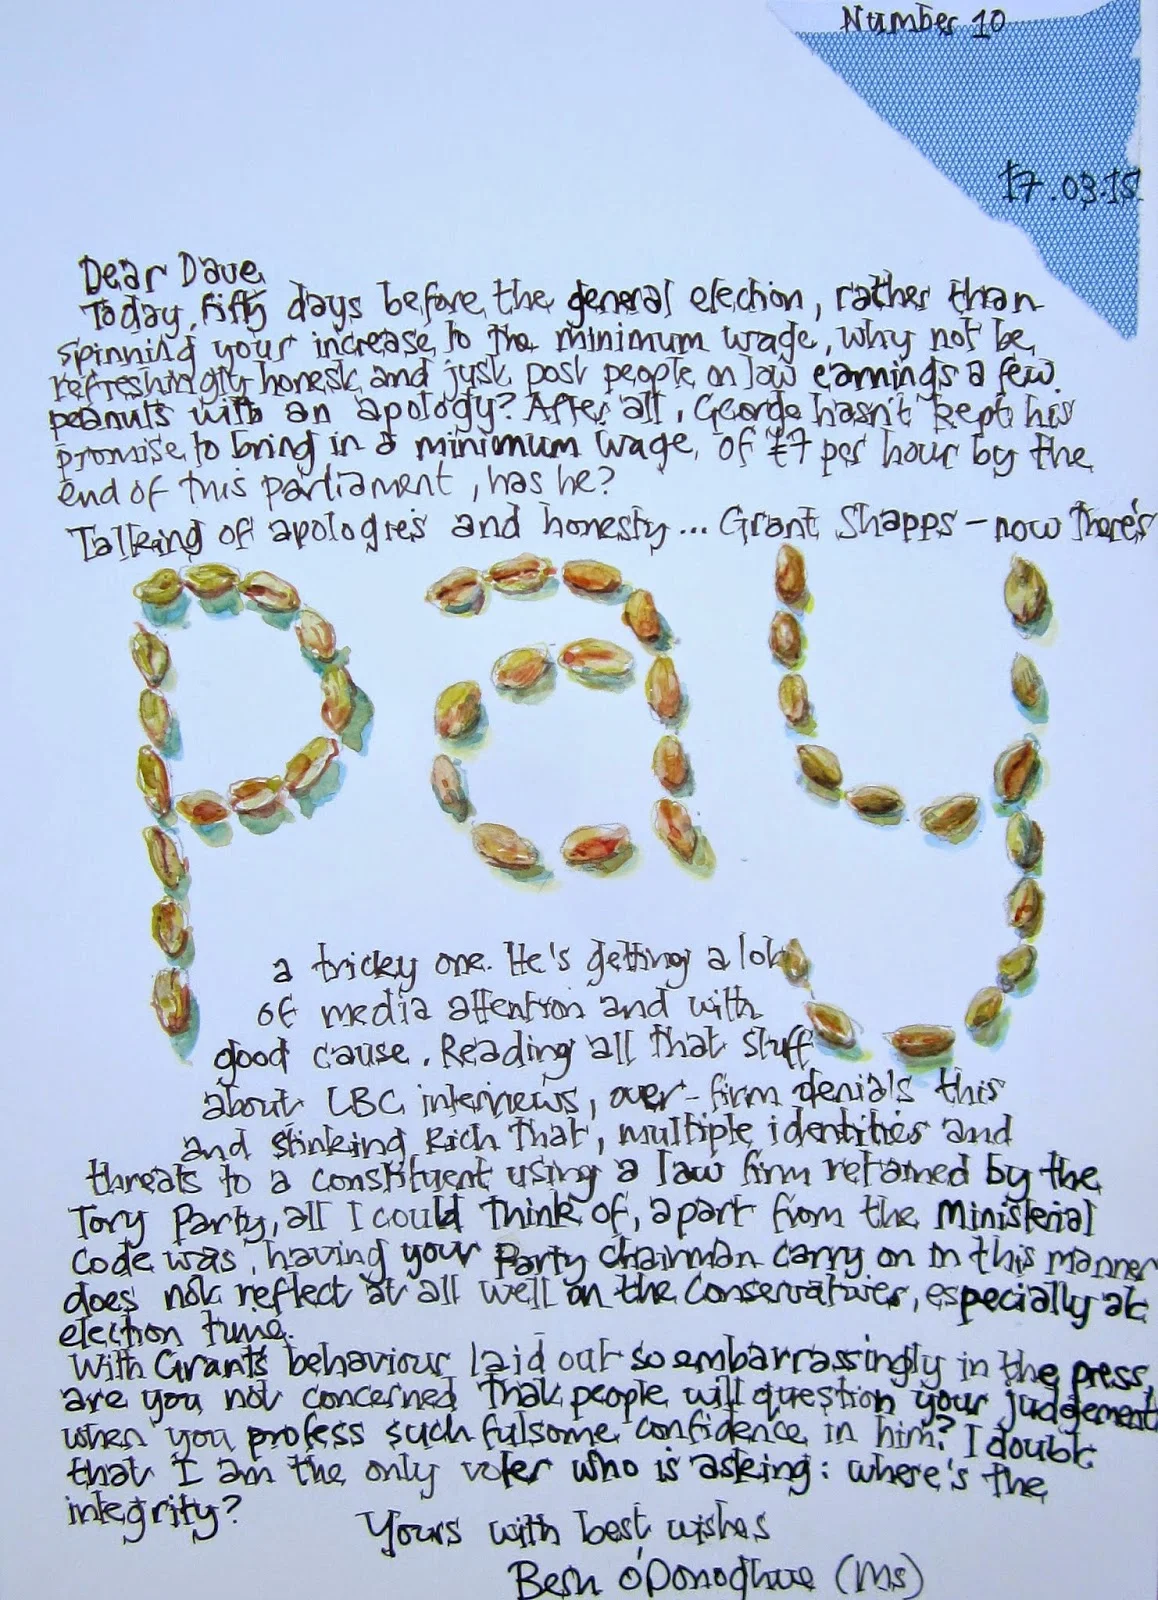 Number 10
17.03.15
Dear Dave
Today, fifty days before the general election, rather than
spinning your increase to the minimum wage, why not be
refreshingly honest and just post people on low earnings a few
peanuts with an apology? After all, George hasn't kept his
promise to bring in a minimum wage of £7 per hour by the
end of this parliament, has he?
Talking of apologies and honesty... Grant Shapps - now there's
pay
a tricky one. He's getting a lot
of media attention and with
good cause. Reading all that stuff
about LBC interviews, over-firm denials this
and stinking Rich that, multiple identities and
threats to a constituent using a law firm retained by the
Tory Party, all I could think of, apart from the Ministerial
Code was, having your Party chairman carry on in this manner
does not reflect at all well on the Conservatives, especially at
election time.
With Grant's behaviour laid out so embarrassingly in the press,
are you not concerned that people will question your judgement
when you profess such fulsome confidence in him? I doubt
that I am the only voter who is asking: where's the
integrity?
Yours with best wishes
O'Donoghue (Ms)